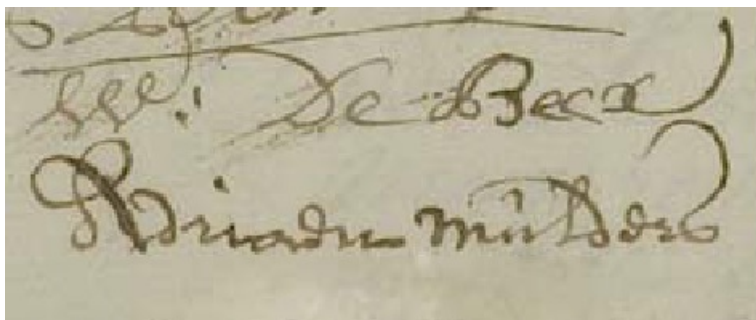 W: De Becx
Adriaen mulders